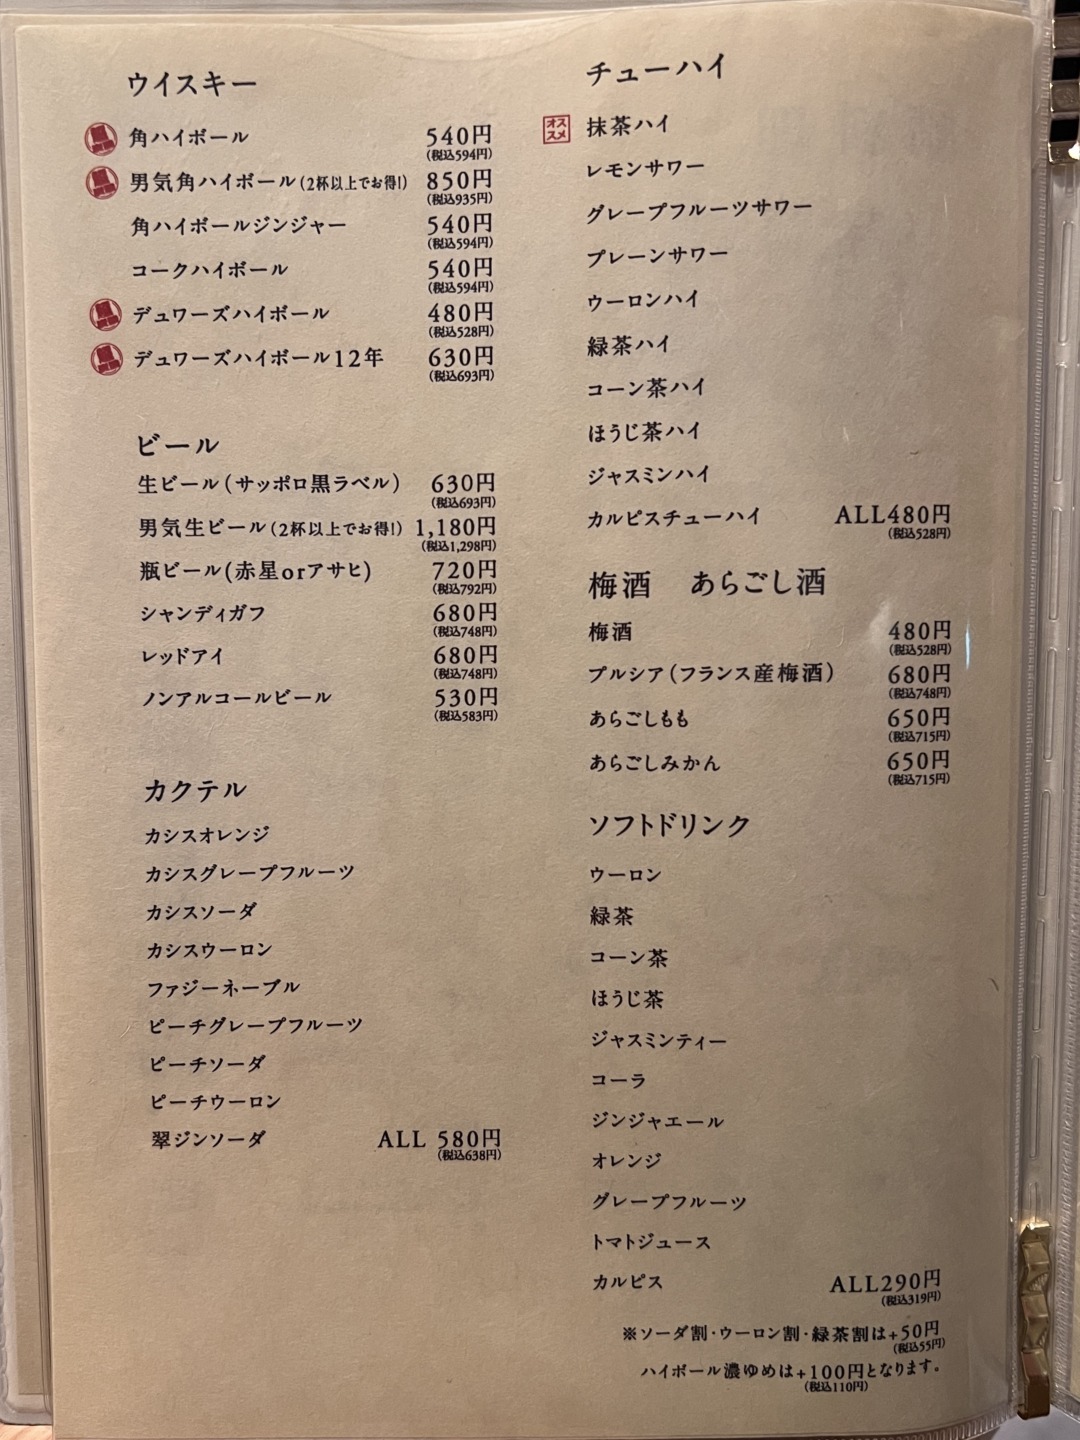 ウイスキー
角ハイボール 540円
(税込594円)
男気角ハイボール(2杯以上でお得!) 850円
(税込935円)
角ハイボールジンジャー 540円
(税込594円)
コークハイボール 540円
(税込594円)
デュワーズハイボール 480円
(税込528円)
デュワーズハイボール12年 630円
(税込693円)
ビール
生ビール(サッポロ黒ラベル) 630円
(税込693円)
男気生ビール(2杯以上でお得!) 1,180円
(税込1,298円)
瓶ビール(赤星orアサヒ) 720円
(税込792円)
シャンディガフ 680円
(税込748円)
レッドアイ 680円
(税込748円)
ノンアルコールビール 530円
(税込583円)
カクテル
カシスオレンジ
カシスグレープフルーツ
カシスソーダ
カシスウーロン
ファジーネーブル
ピーチグレープフルーツ
ピーチソーダ
ピーチウーロン
翠ジンソーダ ALL 580円
(税込638円)
チューハイ
オススメ 抹茶ハイ
レモンサワー
グレープフルーツサワー
プレーンサワー
ウーロンハイ
緑茶ハイ
コーン茶ハイ
ほうじ茶ハイ
ジャスミンハイ
カルピスチューハイ ALL480円
(税込528円)
梅酒 あらごし酒
梅酒 480円
(税込528円)
プルシア(フランス産梅酒) 680円
(税込748円)
あらごしもも 650円
(税込715円)
あらごしみかん 650円
(税込715円)
ソフトドリンク
ウーロン
緑茶
コーン茶
ほうじ茶
ジャスミンティー
コーラ
ジンジャエール
オレンジ
グレープフルーツ
トマトジュース
カルピス ALL290円
(税込319円)
※ソーダ割・ウーロン割・緑茶割は+50円
(税込55円)
ハイボール濃ゆめは+100円となります。
(税込110円)